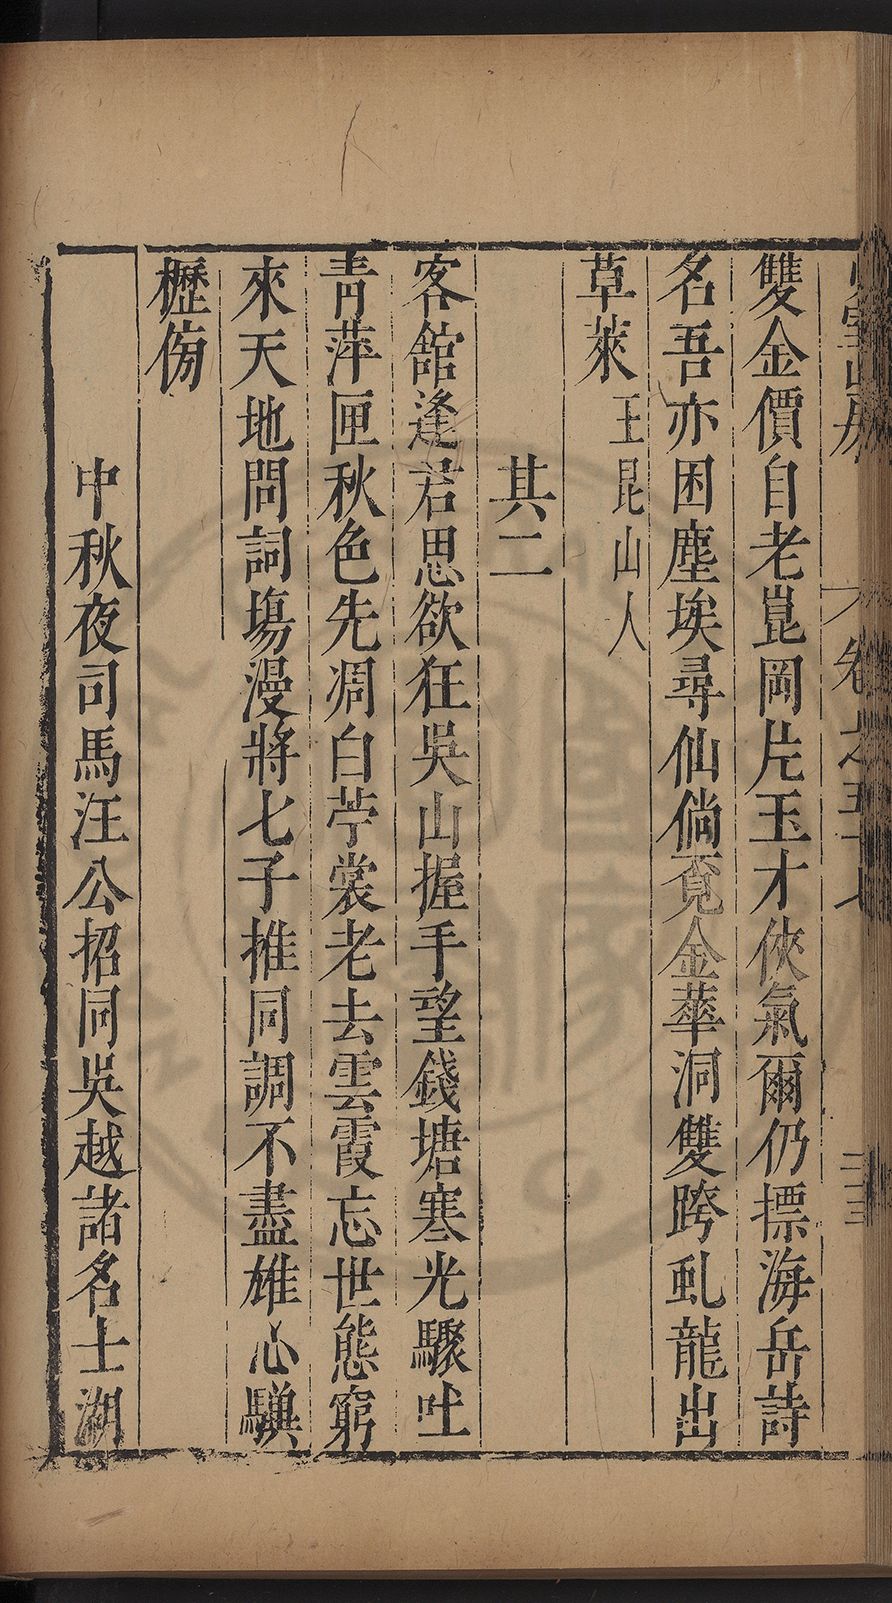 卷之五十七
二十三
雙金價自老崑岡片玉才俠氣爾仍摽海岳詩
名吾亦困塵埃尋仙倘覓金華洞雙跨虬龍出
草萊王昆山人
其二
客館逢君思欲狂吳山握手望錢塘寒光驟吐
青萍匣秋色先凋白苧裳老去雲霞忘世態窮
來天地問詞塲漫將七子推同調不盡雄心驥
櫪傍
中秋夜司馬汪公招同吳越諸名士湖